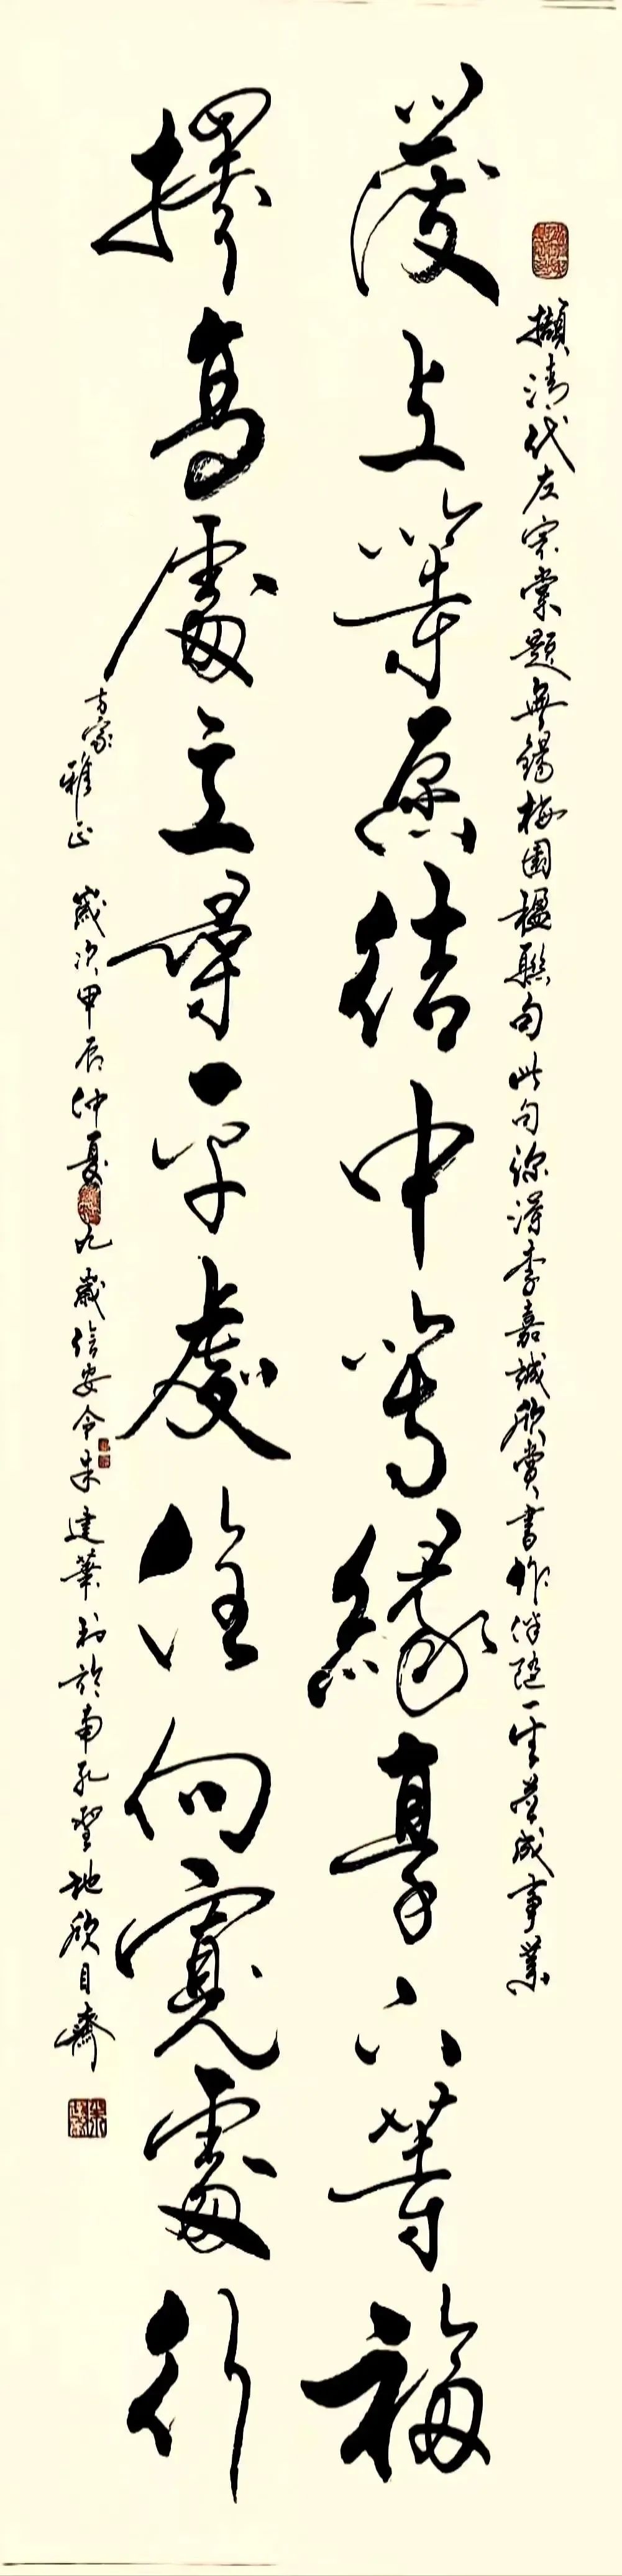 擷清代左宗棠題無錫梅園楹聯句此句深得李嘉誠欣賞書作伴隨一生成事業
發上等願結中等緣享下等福
擇高處立尋平處住向寬處行
方家雅正 歲次甲辰仲夏九歲信安令朱建華於南孔聖地欣目齋